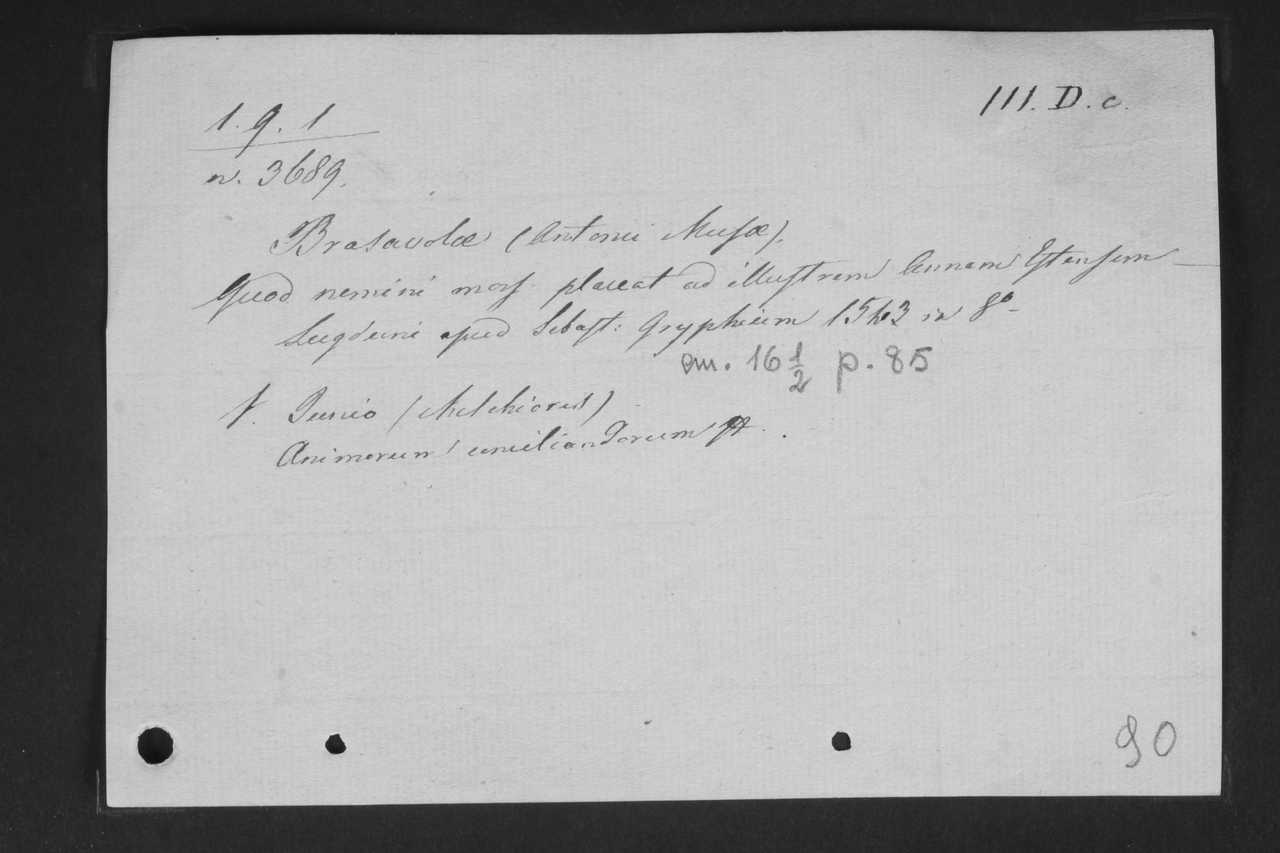 1. 9. 1
III. D. c.
n. 3689.
Brasavolæ (Antonii Musæ).
Quod nemini mors placeat ad illustrem Annam Estensem
Lugduni apud Sebast: Gryphium 1543 in 8º
cm. 16 1/2 p. 85
V. Junio (Melchiorus)
Animorum conciliandorum
90